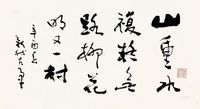 山重水
複疑無
路柳暗花
明又一村
辛酉春